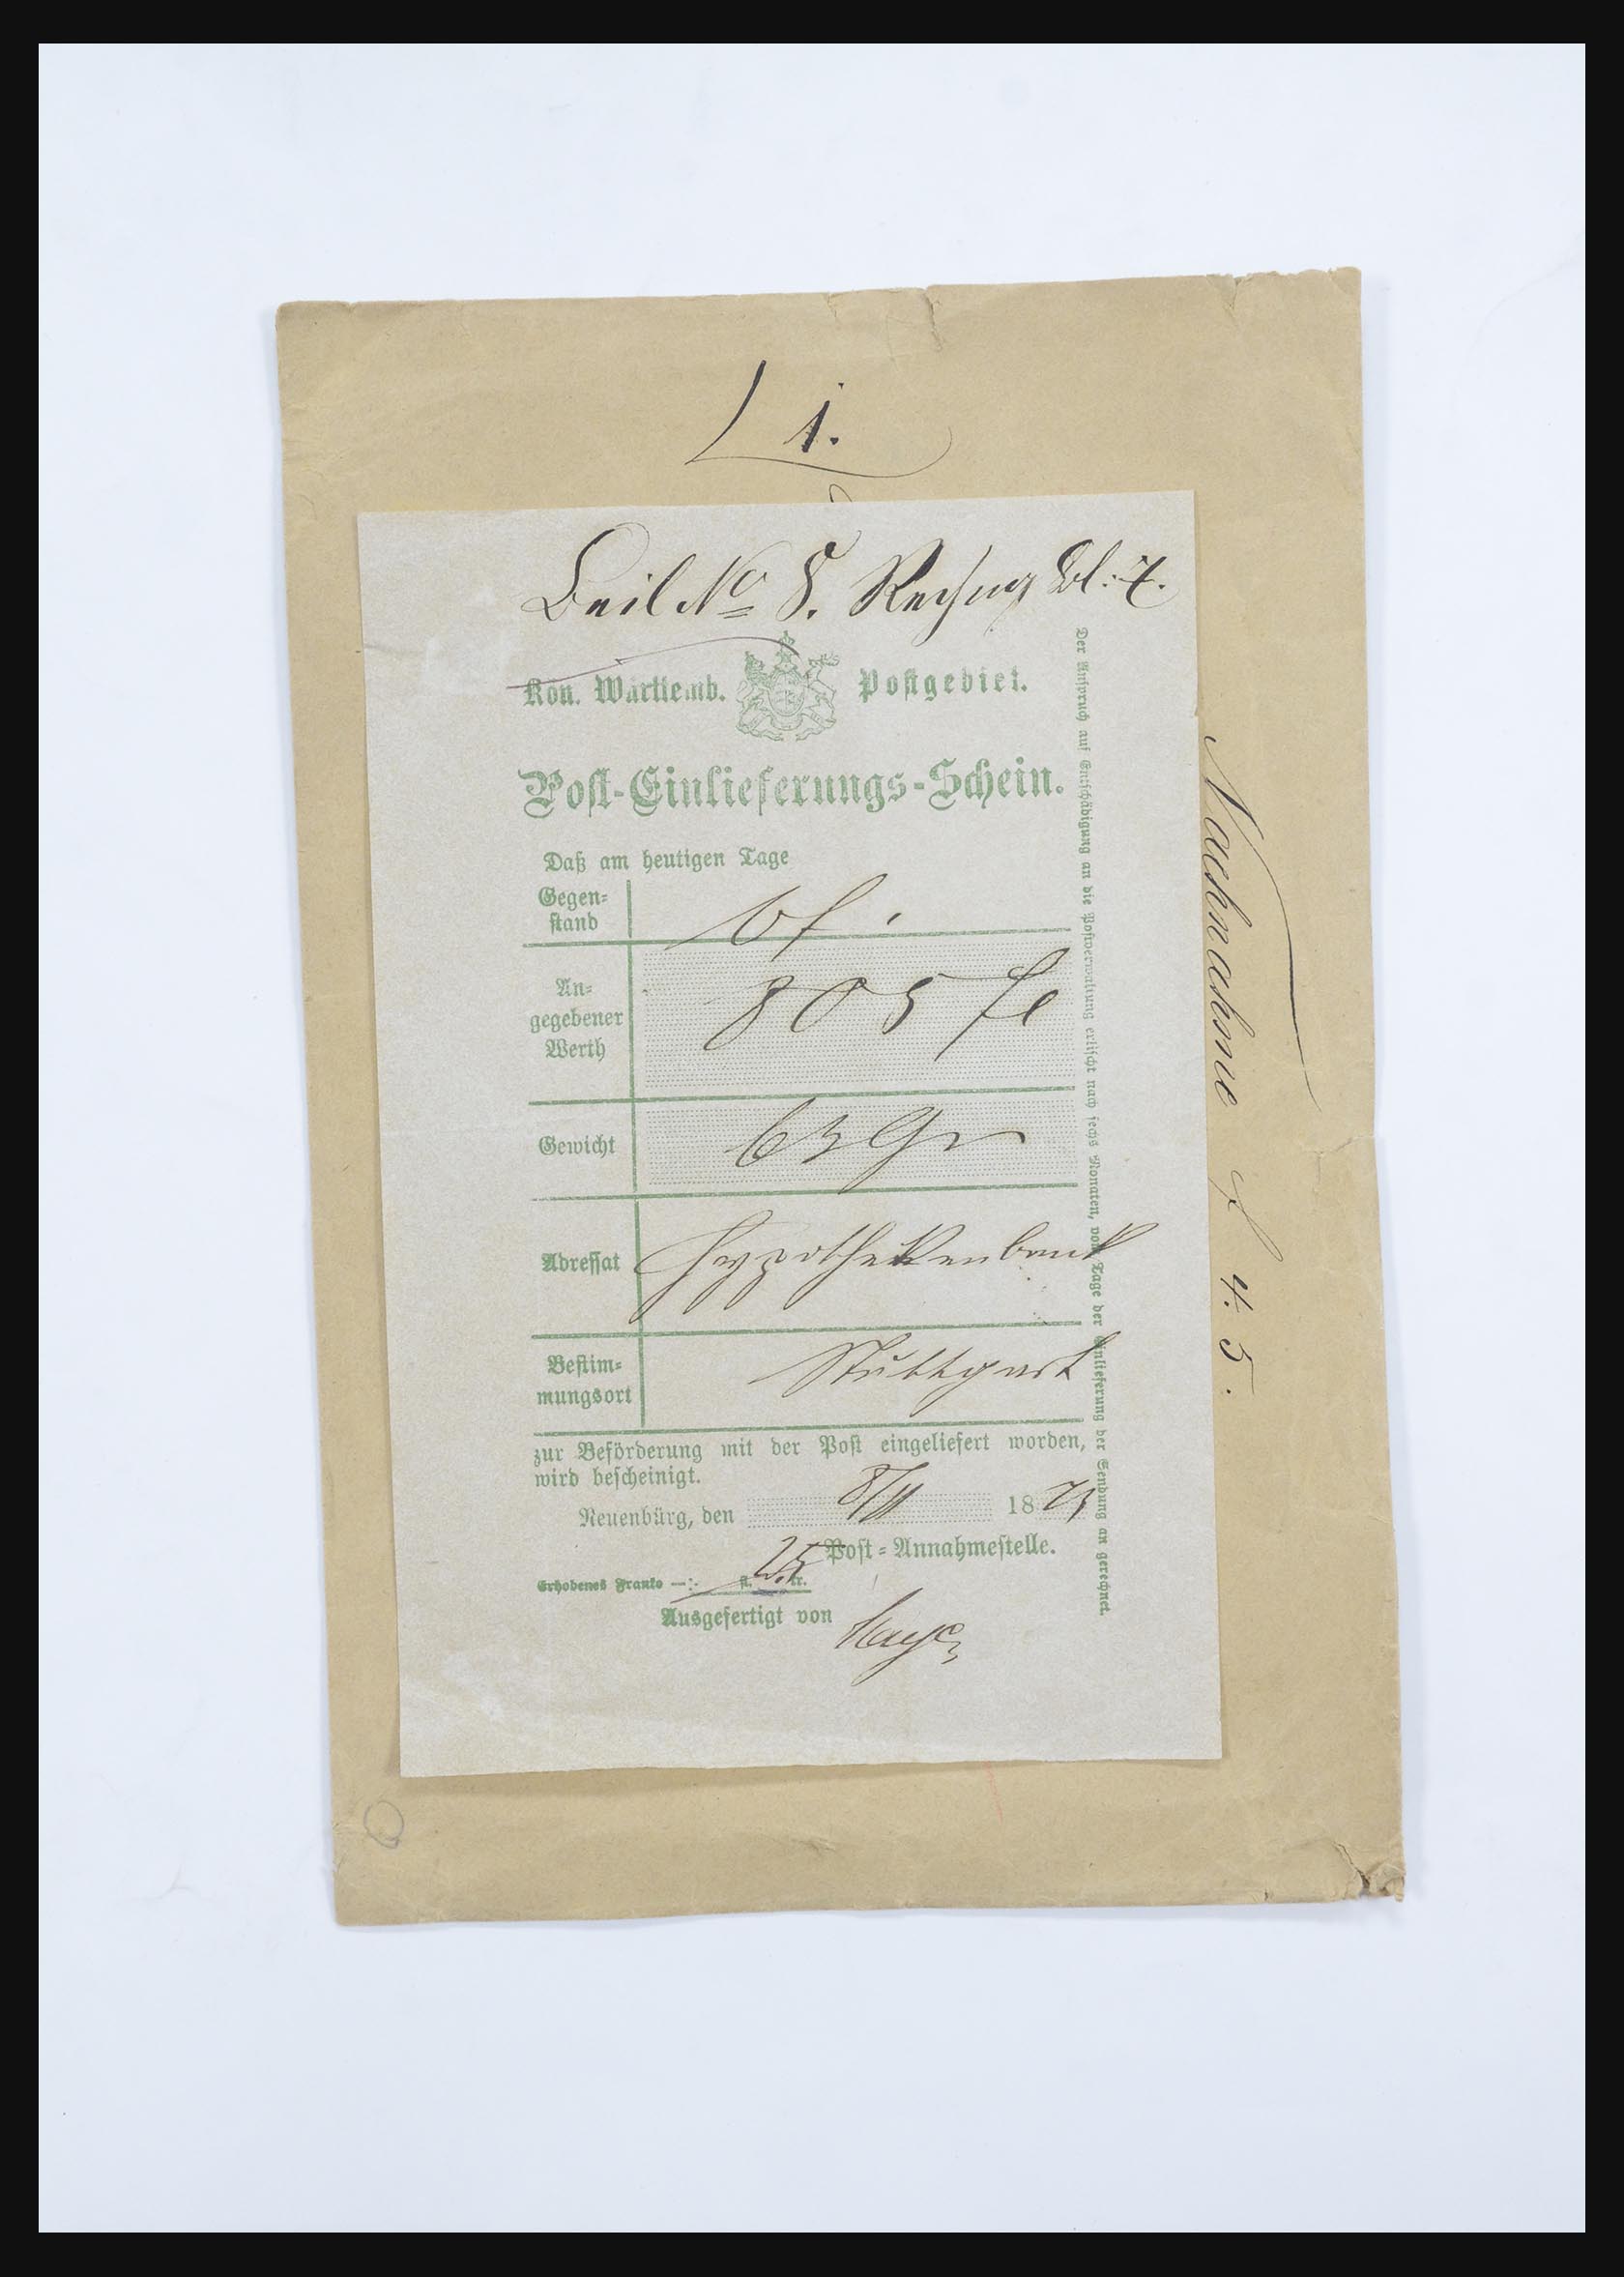 1.
Beil No 8. Rechng Bl: 7.
Kön. Württemb. Postgebiet.
Post-Einlieferungs-Schein.
Daß am heutigen Tage
Gegen=
stand
Bf.
An=
gegebener
Werth
805 fl
Gewicht
63 Gr
Adressat
Hypothekenbank
Bestim=
mungsort
Stuttgart
zur Beförderung mit der Post eingeliefert worden,
wird bescheinigt.
Neuenbürg, den 8/11 1873
Post=Annahmestelle.
Erhobenes Franko —:- fl. 25 kr.
Ausgefertigt von
Der Anspruch auf Entschädigung an die Postverwaltung erlischt nach sechs Monaten, vom Tage der Einlieferung der Sendung an gerechnet.
Nachnahme f 4. 5.